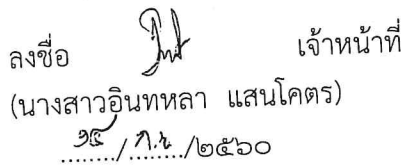 ลงชื่อ เจ้าหน้าที่
(นางสาวอินทหลา แสนโคตร)
๑๕/ก.ย/๒๕๖๐